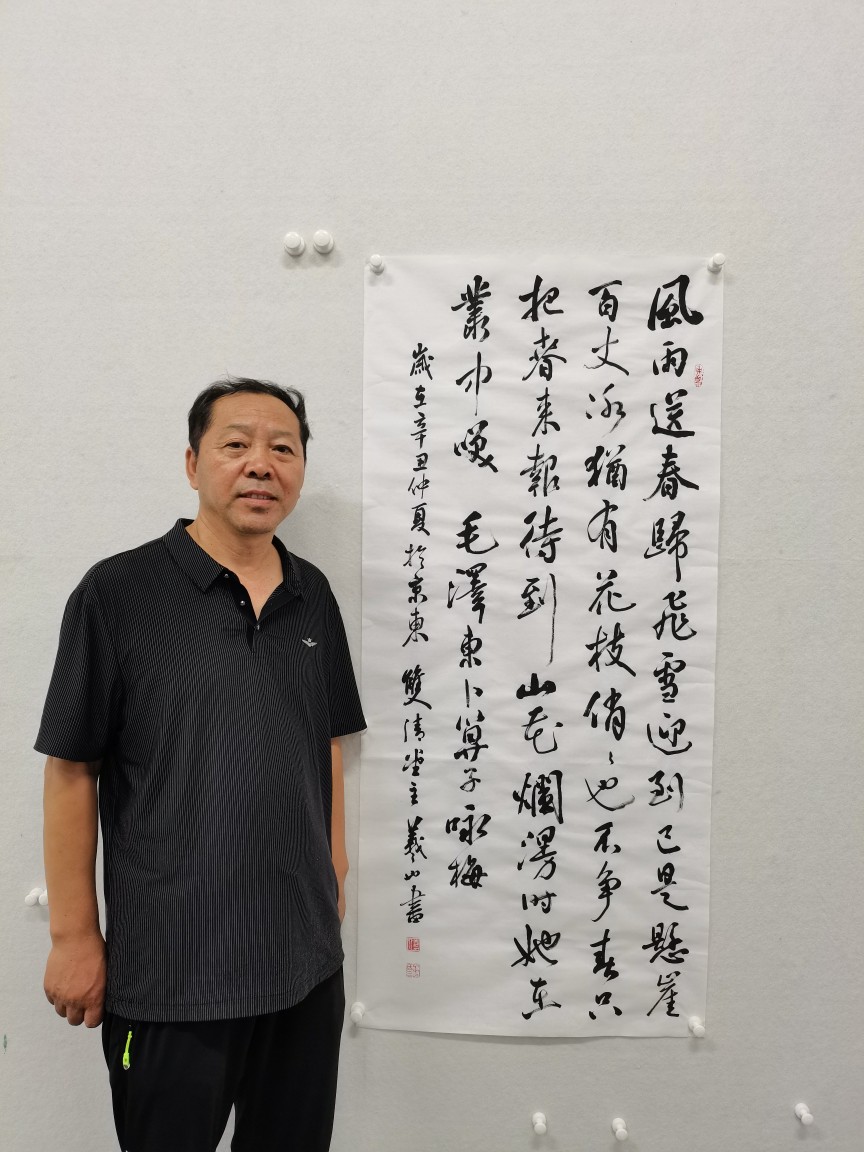 風雨送春歸飛雪迎到已是懸崖
百丈冰猶有花枝俏俏也不争春只
把春來報待到山花爛漫時她在
叢中笑 毛澤東卜算子咏梅
歲在辛丑仲夏於京東雙清堂主義山書